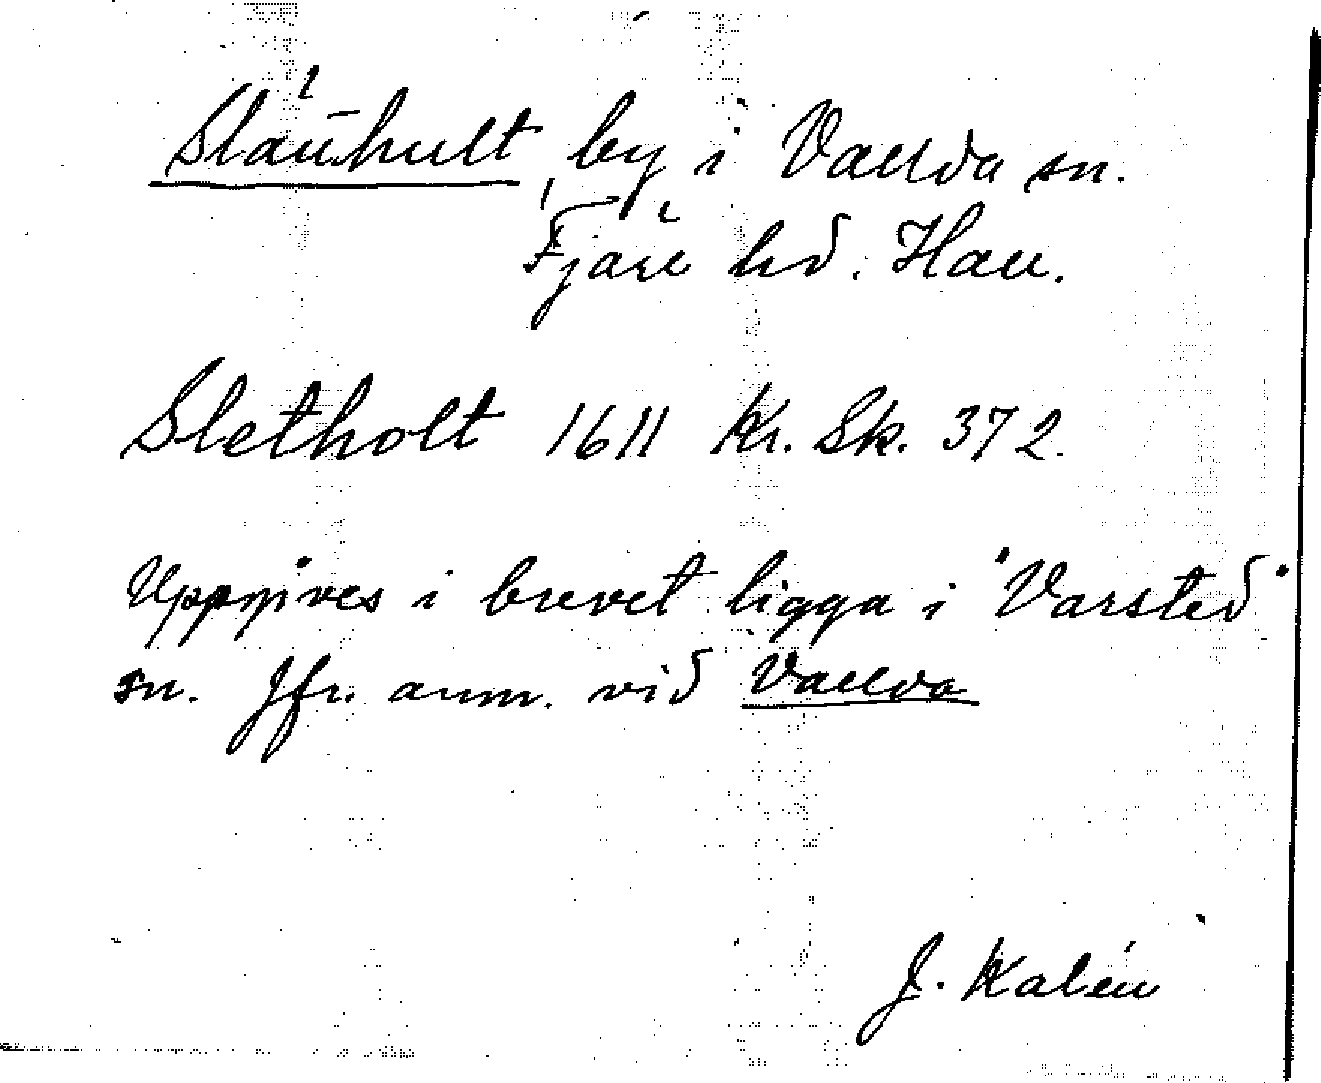 Slätthult by i Vallda sn.
Fjäre hd. Hall.
Sletholt 1611 Kr. Sk. 372.
Uppgives i brevet ligga i "Varsted"
sn. Jfr. anm. vid Vallda
J. Kalén